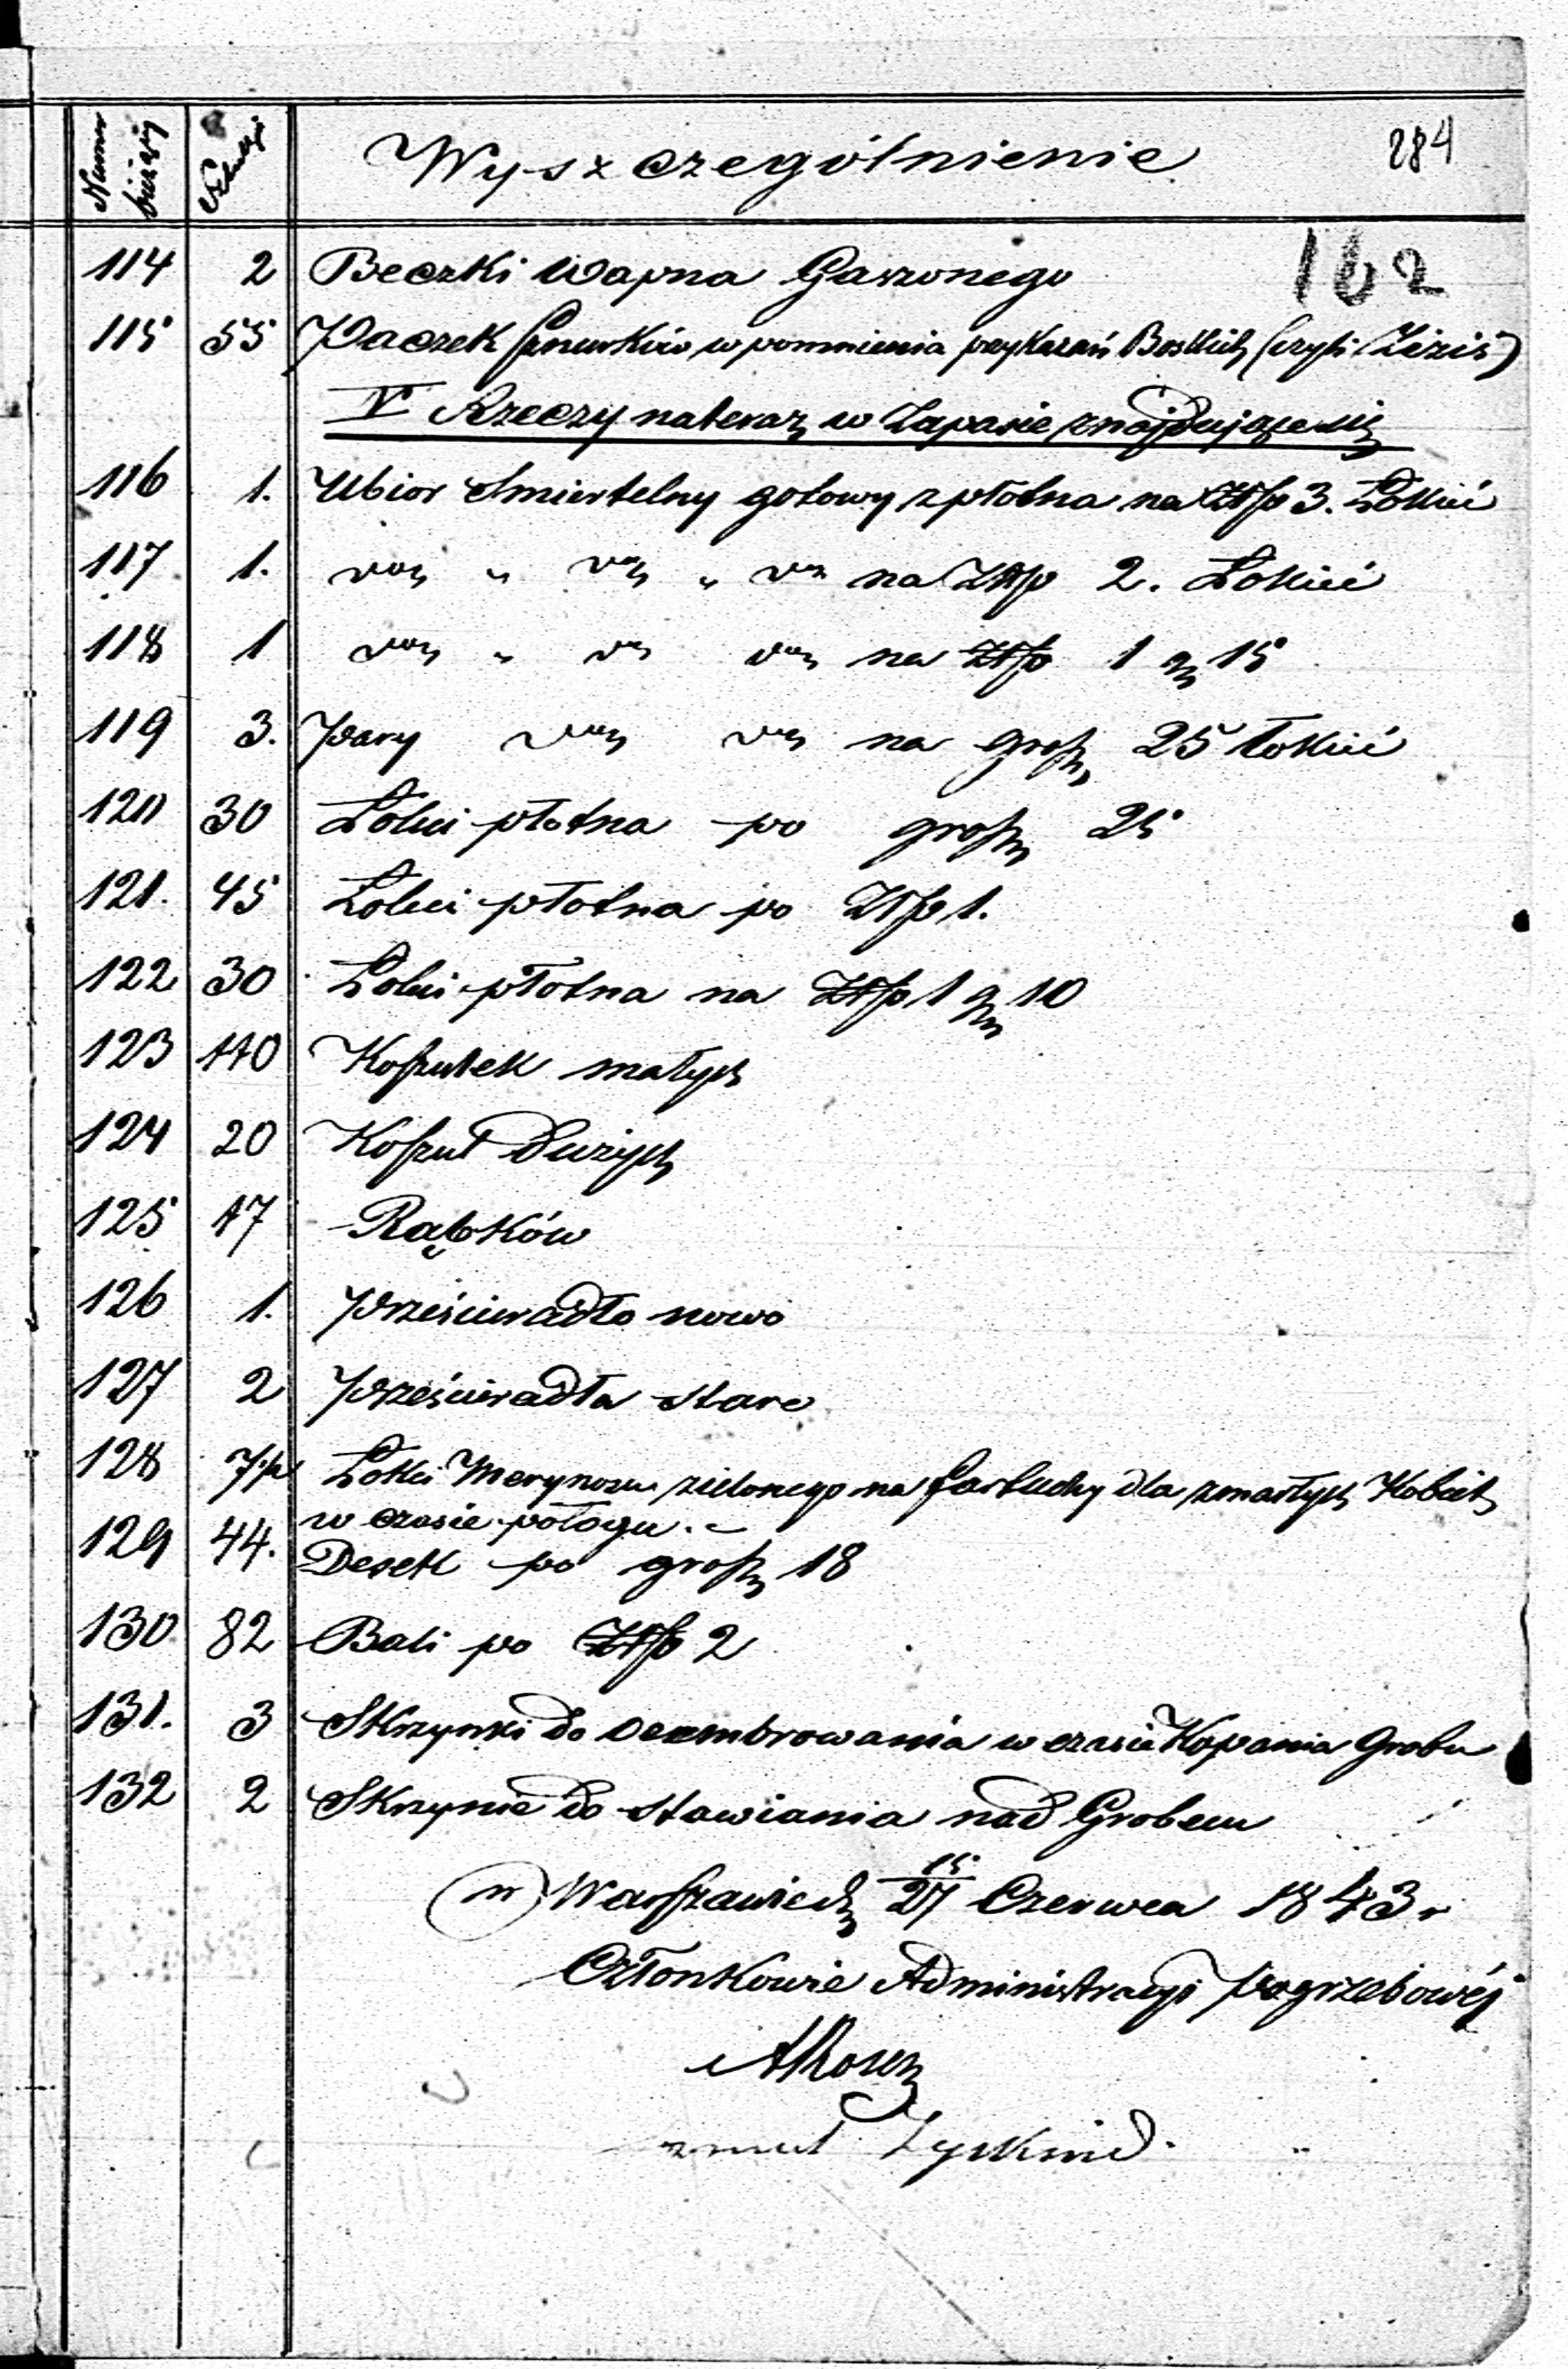 Numer bieżący
Wyszczególnienie
284
162
114 2 Beczki Wapna Gaszonego
115 55 Paczek sznurków wpomnienia przykazań Boskich (czyli Zizis)
V Rzeczy nateraz w Zapasie znajdujące się
116 1. Ubior Smiertelny gotowy z płotna na Złp 3. Łokieć
117 1. dto " dto " dto na Złp 2. Łokieć
118 1 dto " dto dto na Złp 1 gr 15
119 3. Pary dto dto na grosz 25 Łokieć
120 30 Łokci płotna po groszy 25
121. 45 Łokci płotna po Złp 1.
122 30 Łokci płotna na Złp 1 gr 10
123 110 Koszulek małych
124 20 Koszul Dużych
125 17 Rąbków
126 1. Prześcieradło nowo
127 2 Prześcieradła stare
128 7 1/2 Łokci Merynosu zielonego na fartuchy dla zmarłych Kobiet
w czasie połogu. -
129 44. Desek po groszy 18
130 82 Bali po Złp 2
131. 3 Skrzynki do Ocembrowania w czasie Kopania Grobu
132 2 Skrzynie do stawiania nad Grobem
w Warszawie d 15/27 Czerwca 1843 r
Członkowie Administracyi Pogrzebowéj
ARosen
Zyskind